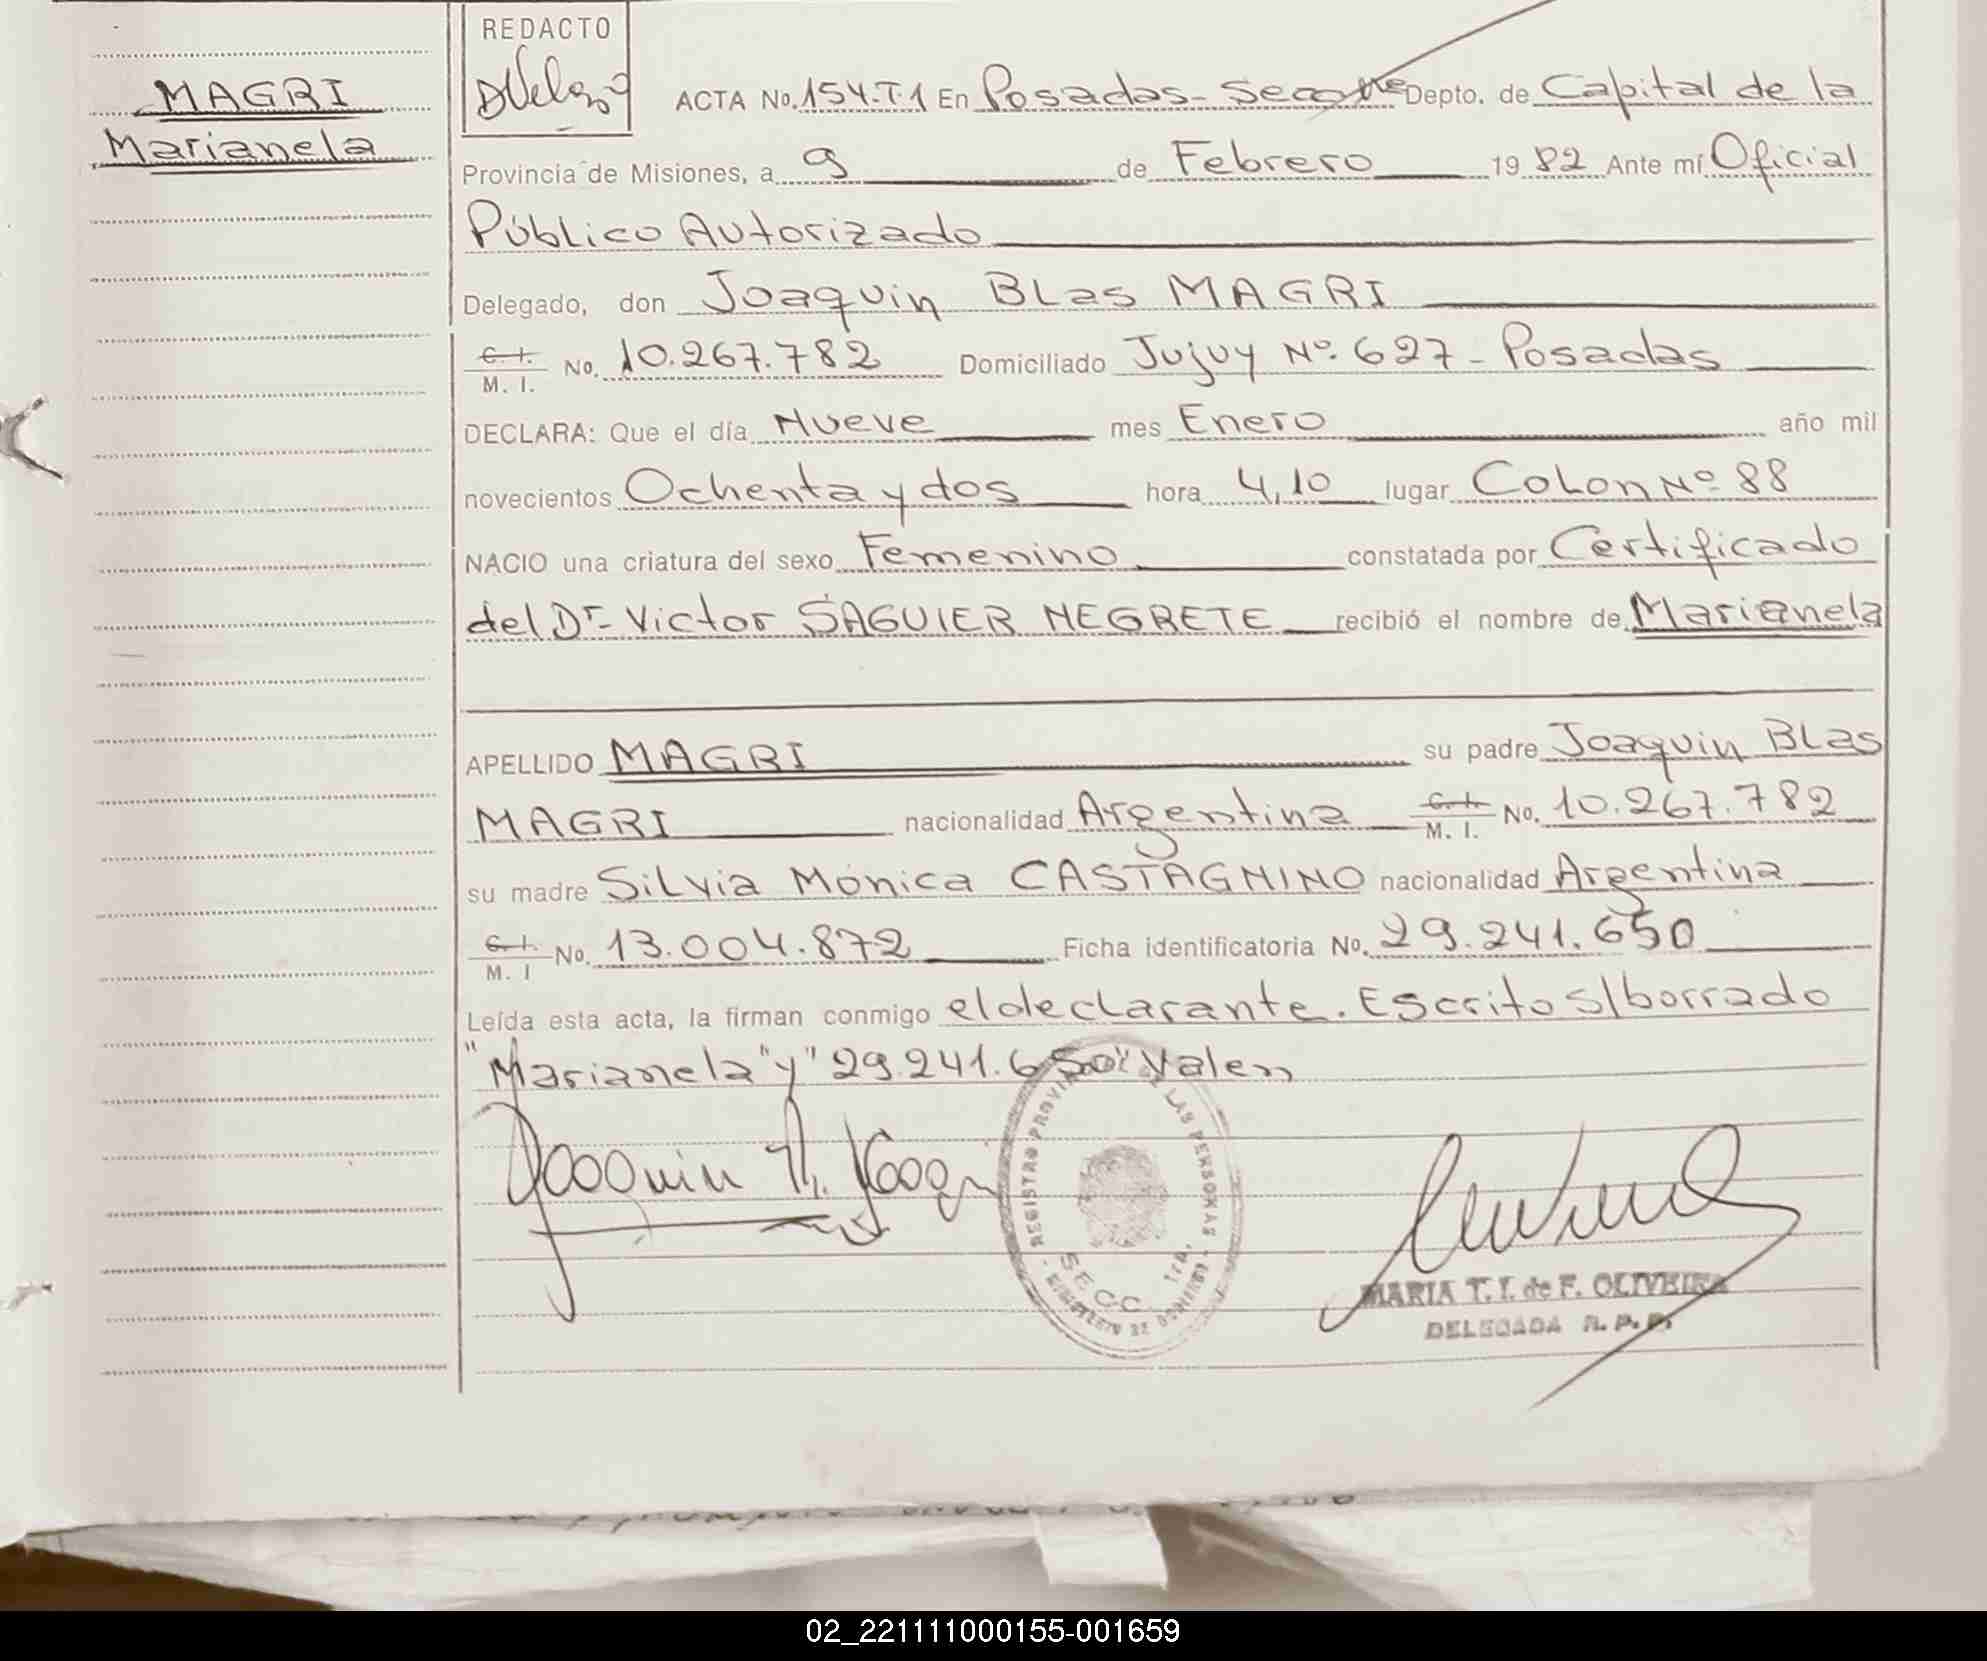 REDACTO
MAGRI
Marianela
ACTA No. 154.T.1 En Posadas - Secc 1ra Depto. de Capital de la
Provincia de Misiones, a 9 de Febrero 1982 Ante mí Oficial
Público Autorizado
Delegado, don Joaquin BLas MAGRI
C. I. M. I. No. 10.267.782 Domiciliado Jujuy Nº 627 - Posadas
DECLARA: Que el día Nueve mes Enero año mil
novecientos Ochenta y dos hora 4,10 lugar Colon Nº 88
NACIO una criatura del sexo Femenino constatada por Certificado
del Dr. Victor SAGUIER NEGRETE recibió el nombre de Marianela
APELLIDO MAGRI su padre Joaquin BLas
MAGRI nacionalidad Argentina C. I. M. I. No. 10.267.782
su madre Silvia Mónica CASTAGNINO nacionalidad Argentina
C. I. M. I No. 13.004.872 Ficha identificatoria No. 29.241.650
Leída esta acta, la firman conmigo el declarante. Escrito s/borrado
"Marianela" y "29.241.650" Valen
REGISTRO PROVINCIAL LAS PERSONAS
SECC. 1ra.
MINISTERIO DE GOBIERNO
MARIA T. I. de F. OLIVEIRA
DELEGADA R. P. P.
02_221111000155-001659